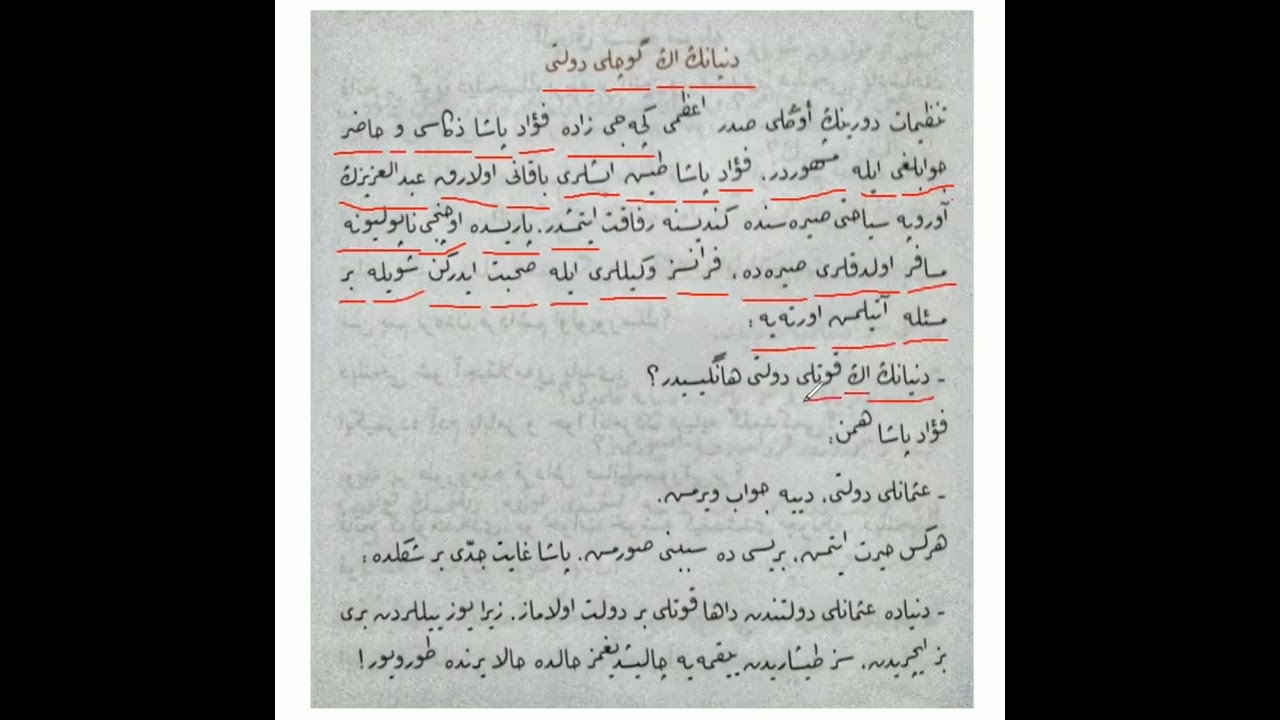 دنیانڭ اڭ گوچلی دولتی
تنظیمات دورینڭ أوڭلی صدر اعظمی کچه جی زاده فؤاد پاشا ذکاسی و حاضر
جوابلغی ایله مشهوردر. فؤاد پاشا طیش ایشلری باقانی اولارق عبدالعزیزڭ
آوروپه سیاحتی صیره سنده کندیسنه رفاقت ایتمشدر. پاریسده اوچنجی ناپولیونه
مسافر اولدقلری صیره ده، فرانسز وکیللری ایله صحبت ایدرکن شویله بر
مسئله آتیلمش اورته یه :
- دنیانڭ اڭ قوتلی دولتی هانگیسیدر؟
فؤاد پاشا همن:
- عثمانلی دولتی، دییه جواب ویرمش.
هرکس حیرت ایتمش، بریسی ده سببنی صورمش. پاشا غایت جدّی بر شکلده :
- دنیاده عثمانلی دولتندن داها قوتلی بر دولت اولاماز. زیرا یوز ییللردن بری
بز ایچریدن، سز طیشاریدن ییقمه یه چالیشدیغمز حالده حالا یرنده طورویور!